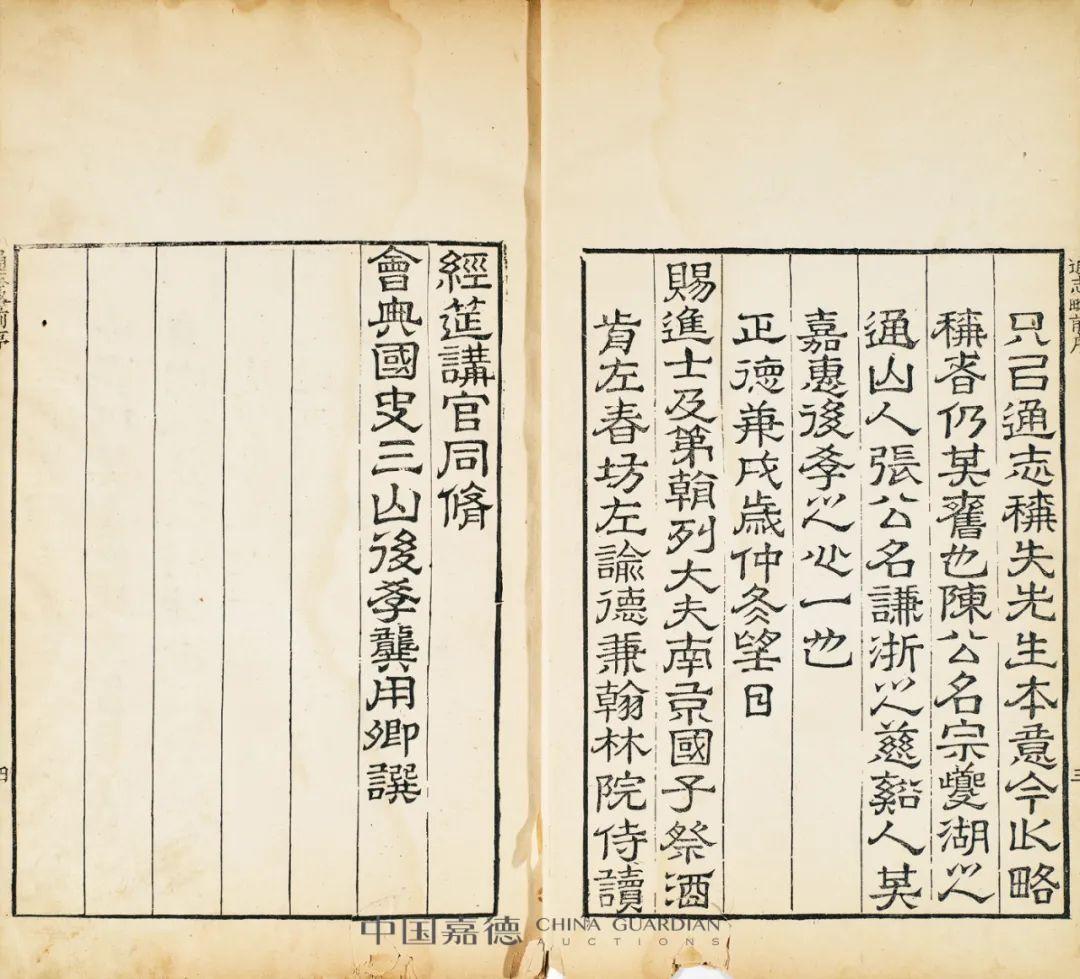 通志略前序
三
只㠯通志稱失先生本意今止略
稱者仍其舊也陳公名宗夔湖之
通山人張公名謙浙之慈谿人其
嘉惠後斈之心一也
正德庚戌歲仲冬望日
賜進士及第朝列大夫南京國子祭酒
前左春坊左諭德兼翰林院侍讀
經筵講官同脩
會典國史三山後斈龔用卿撰
通志略前序
四
中国嘉德 CHINA GUARDIAN
AUCTIONS